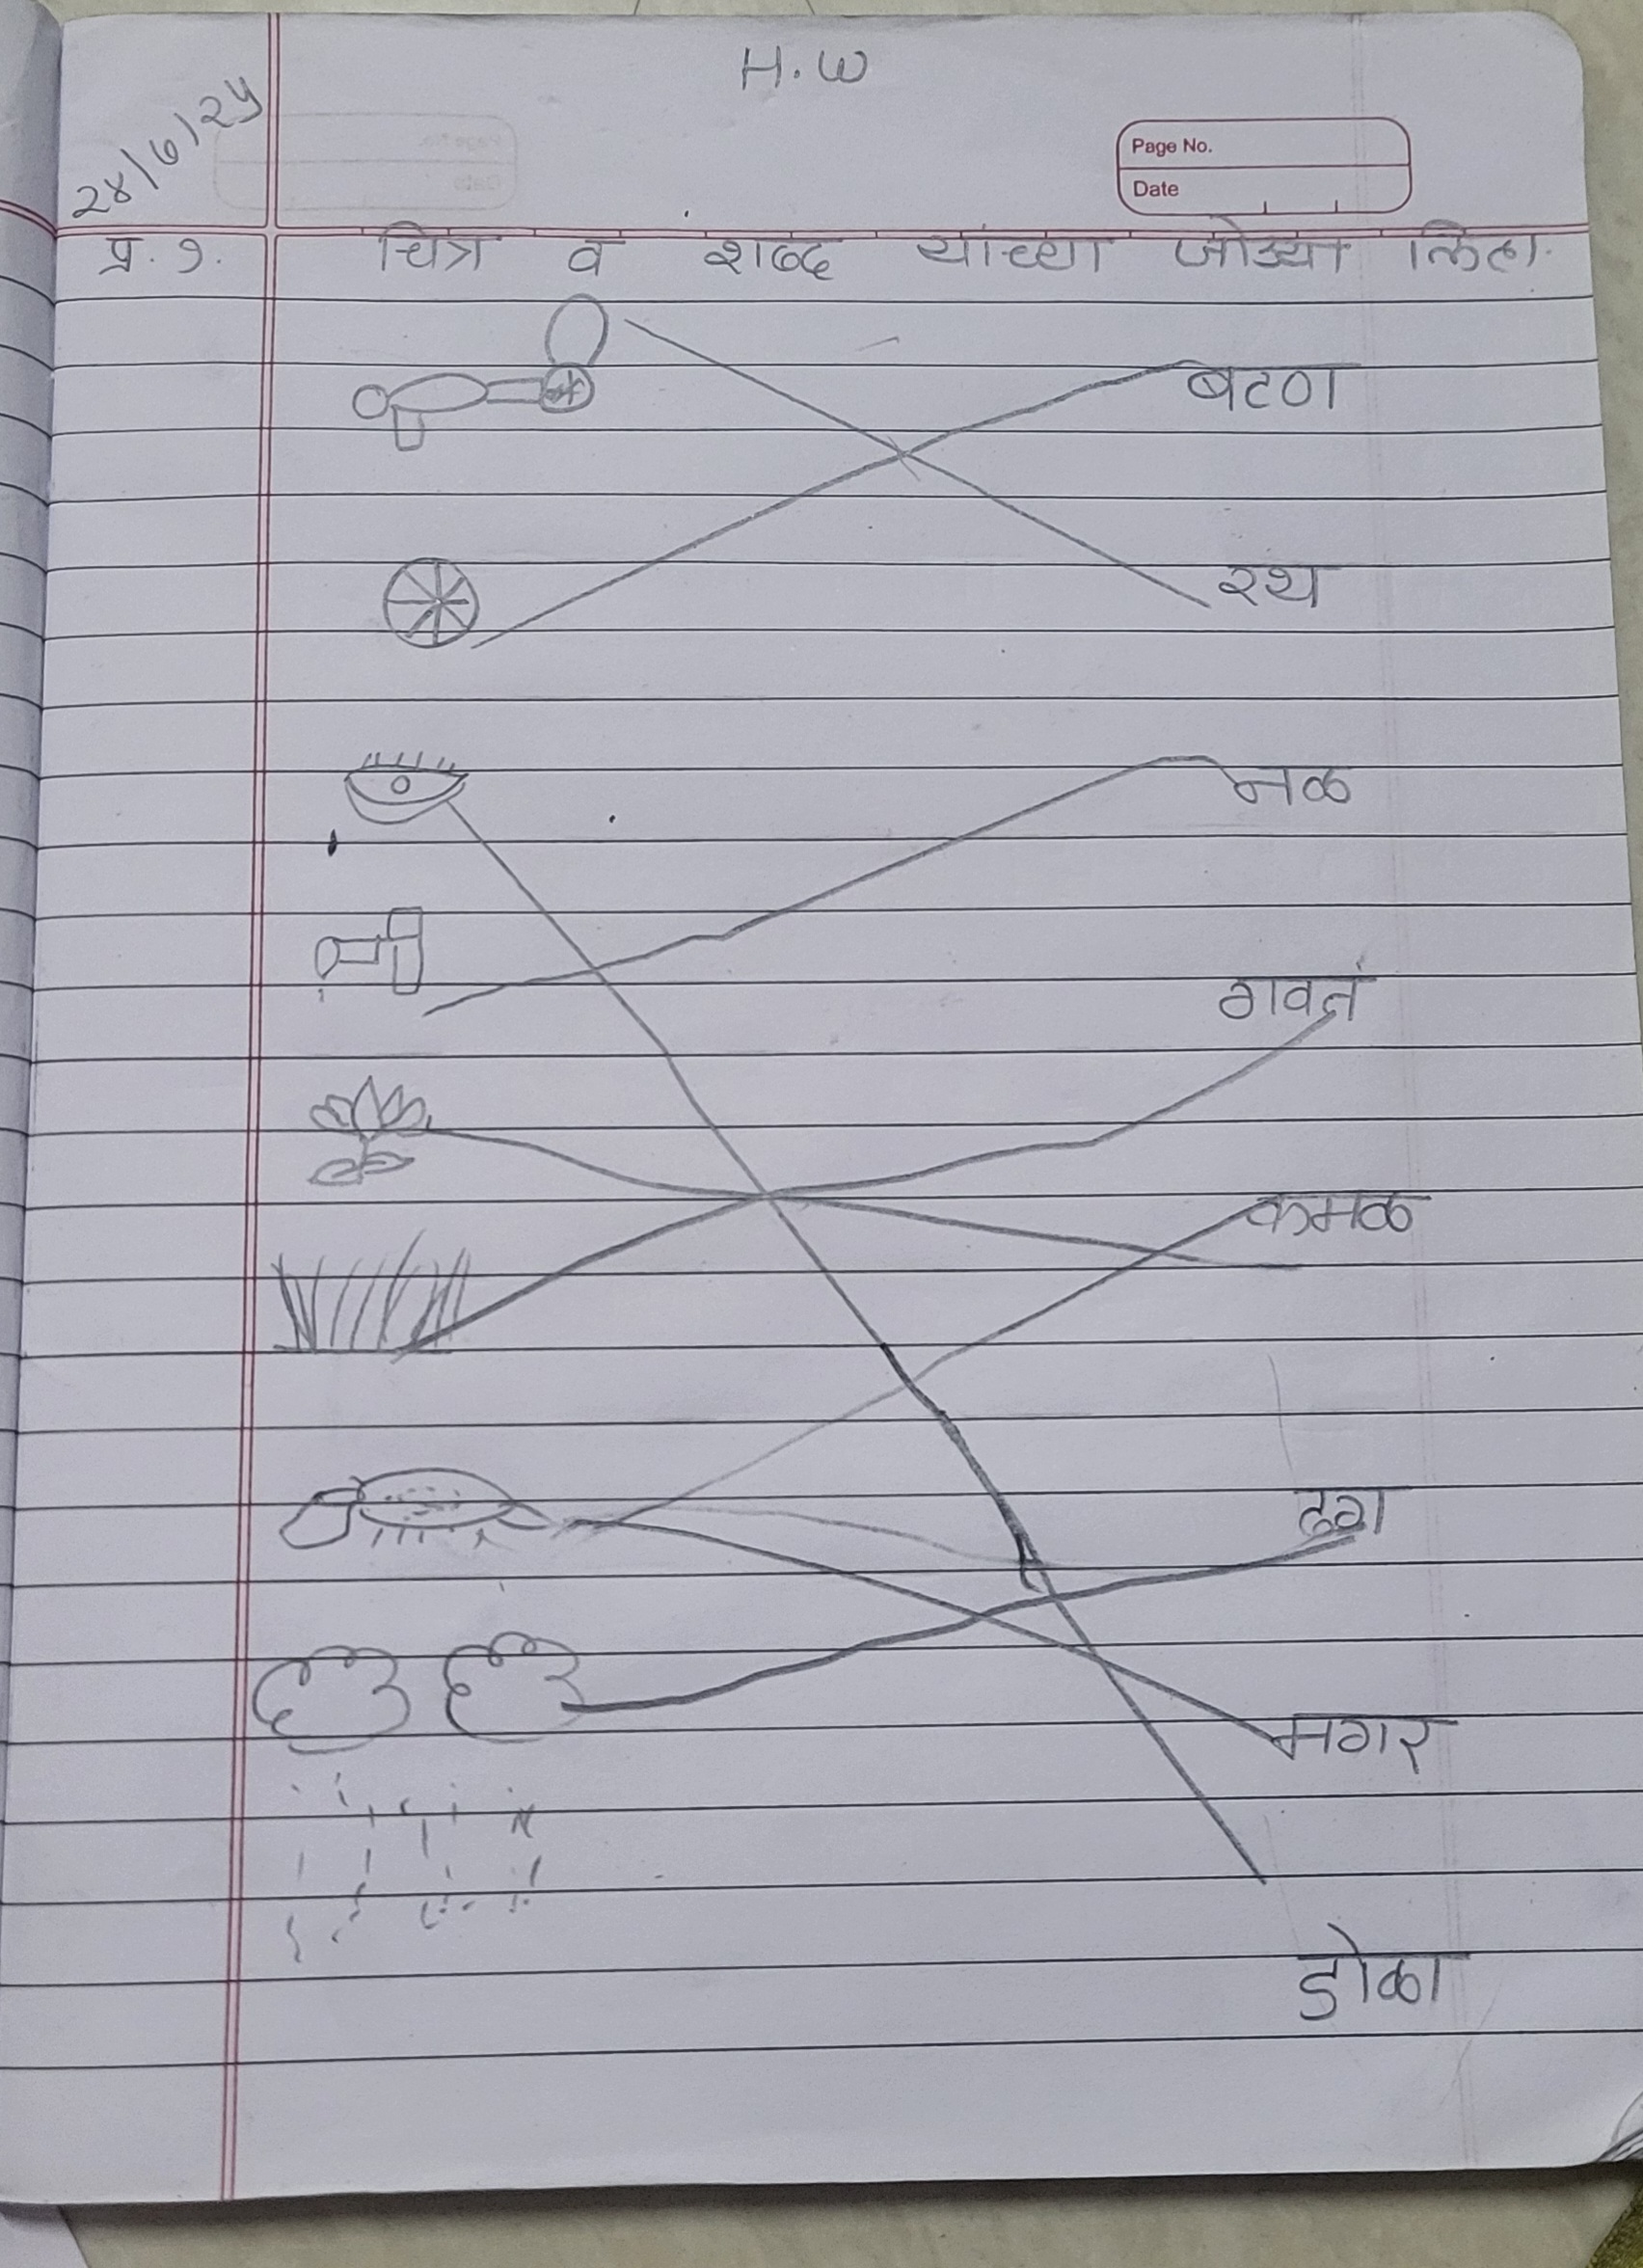 H.W
२४/६/२५
Page No.
Date
प्र. १. चित्र व शब्द यांच्या जोड्या लिहा.
बटण
रथ
नळ
गवत
कमळ
ढग
मगर
डोळा